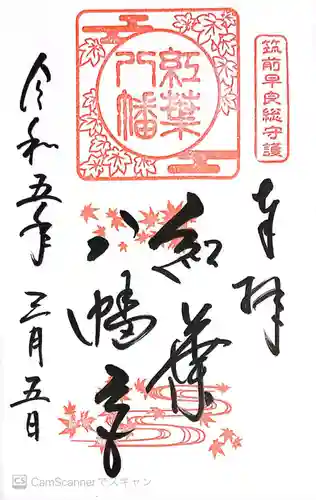 筑前早良総守護
奉拝
紅葉
八幡宮
紅葉
八幡
令和五年 三月五日
CS CamScannerでスキャン